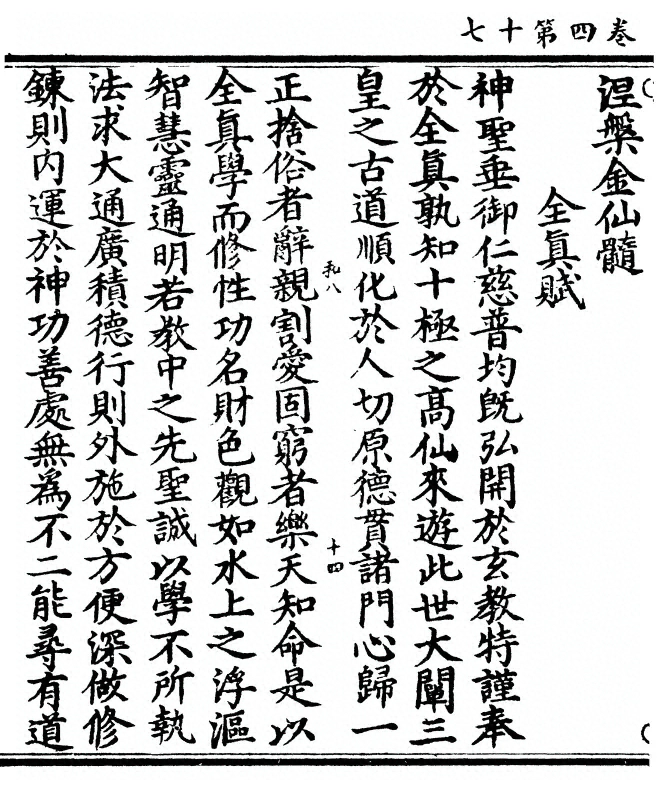 七十第四卷
涅槃金仙髓
全眞賦
神聖垂御仁慈普均旣弘開於玄教特謹奉
於全眞孰知十極之高仙來遊此世大闡三
皇之古道順化於人切原德貫諸門心歸一
十四
正捨俗者辭親割愛固窮者樂天知命是以
全眞學而修性功名財色觀如水上之浮漚
智慧靈通明若教中之先聖誠以學不所執
法求大通廣積德行則外施於方便深做修
鍊則内運於神功善處無爲不二能尋有道